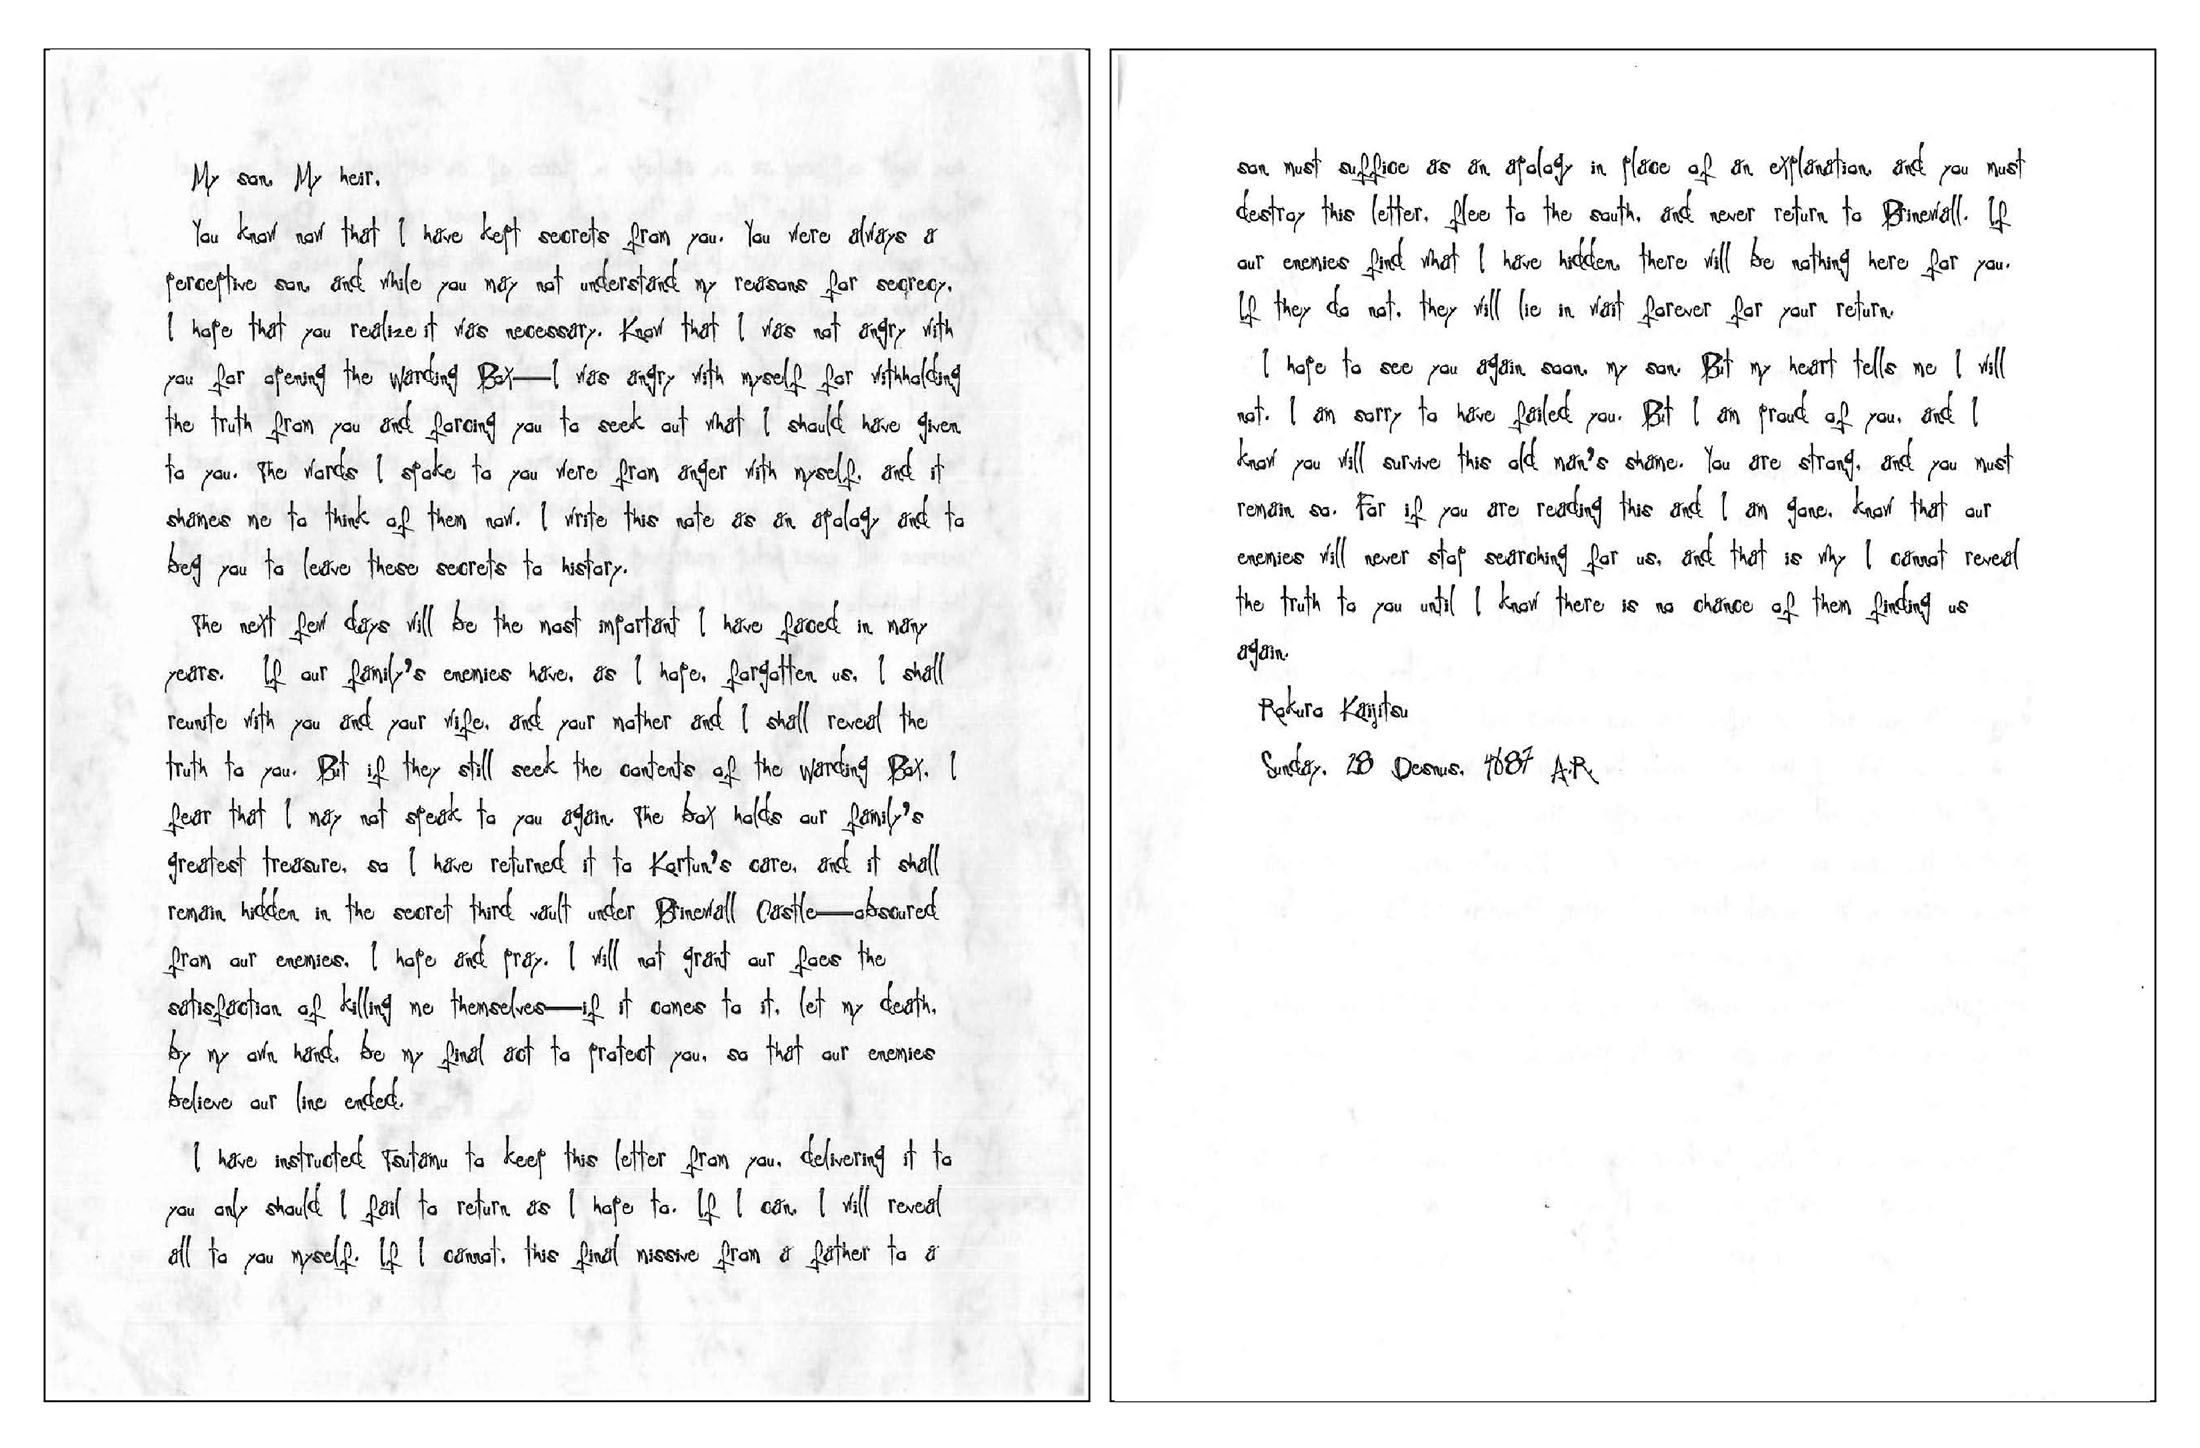 My son, My heir,
You know now that I have kept secrets from you. You were always a
perceptive son, and while you may not understand my reasons for secrecy,
I hope that you realize it was necessary. Know that I was not angry with
you for opening the Warding Box—I was angry with myself for withholding
the truth from you and forcing you to seek out what I should have given
to you. The words I spoke to you were from anger with myself, and it
shames me to think of them now. I write this note as an apology and to
beg you to leave these secrets to history.
The next few days will be the most important I have faced in many
years. If our family's enemies have, as I hope, forgotten us, I shall
reunite with you and your wife, and your mother and I shall reveal the
truth to you. But if they still seek the contents of the Warding Box, I
fear that I may not speak to you again. The box holds our family's
greatest treasure, so I have returned it to Kortun's care, and it shall
remain hidden in the secret third vault under Brinewall Castle—obscured
from our enemies, I hope and pray. I will not grant our foes the
satisfaction of killing me themselves—if it comes to it, let my death,
by my own hand, be my final act to protect you, so that our enemies
believe our line ended.
I have instructed Tsutamu to keep this letter from you, delivering it to
you only should I fail to return as I hope to. If I can, I will reveal
all to you myself. If I cannot, this final missive from a father to a
son must suffice as an apology in place of an explanation, and you must
destroy this letter, flee to the south, and never return to Brinewall. If
our enemies find what I have hidden, there will be nothing here for you.
If they do not, they will lie in wait forever for your return.
I hope to see you again soon, my son. But my heart tells me I will
not. I am sorry to have failed you. But I am proud of you, and I
know you will survive this old man's shame. You are strong, and you must
remain so. For if you are reading this and I am gone, know that our
enemies will never stop searching for us, and that is why I cannot reveal
the truth to you until I know there is no chance of them finding us
again.
Rokuro Kaijitsu
Sunday, 28 Desnus, 4687 A.R.